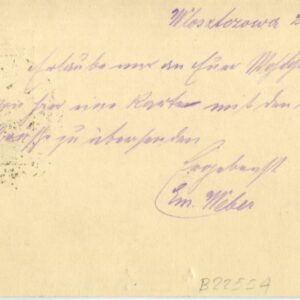 Włoszczowa 2
Erlaube mir an Euer
hier eine Karte mit den
zu übersenden
Ergebenst
Em. Weber
B2255A